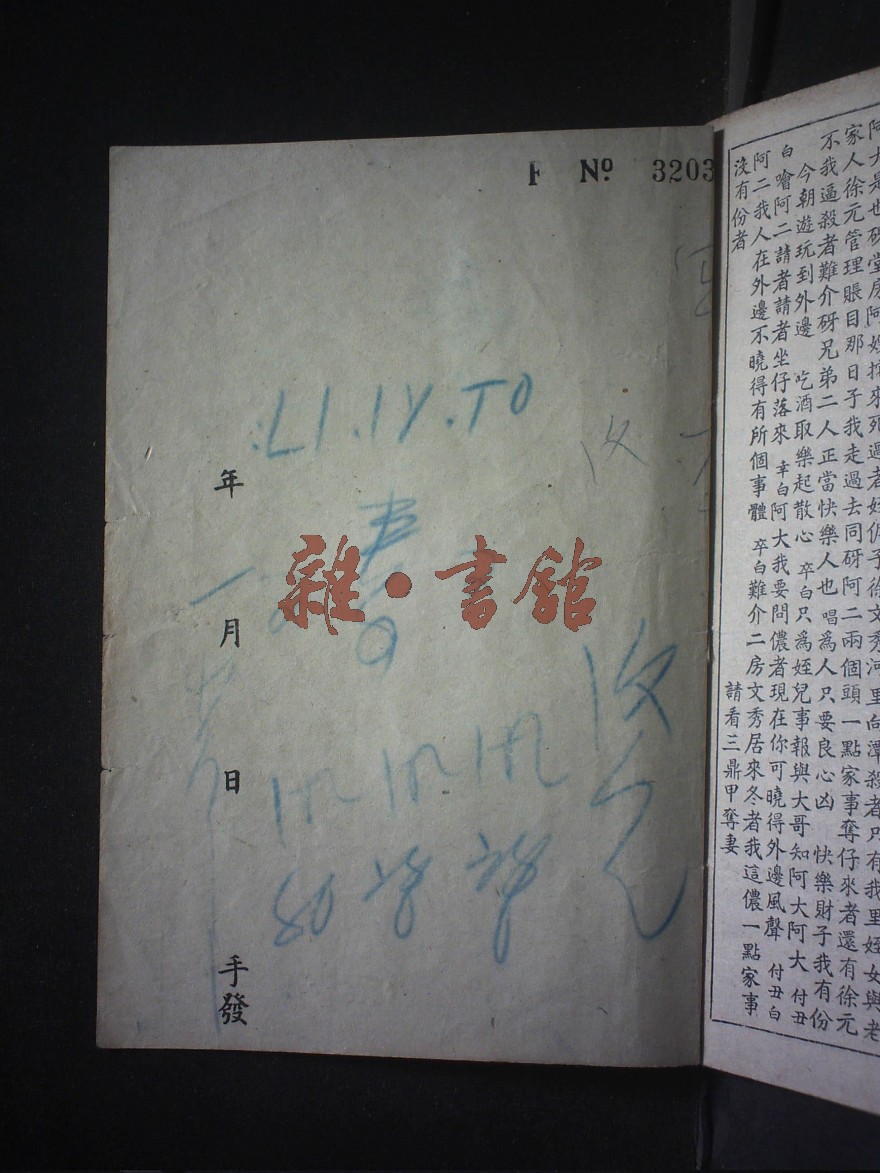 F Nº 3203
:L1.1Y.TO
年
一
月
日
手發
雜·書館
收
80
阿大是也砑堂房阿嫂拚來死過者姪伲子徐文秀河里向潭殺者只有我里姪女與老
家人徐元管理賬目那日子我走過去同砑阿二兩個頭一點家事奪仔來者還有徐元
不我逼殺者難介砑兄弟二人正當快樂人也 唱爲人只要良心凶 快樂財子我有份
今朝遊玩到外邊 吃酒取樂起散心 卒白只爲姪兒事報與大哥知阿大阿大 付丑
白噲阿二請者請者坐仔落來 幸白阿大我要問儂者現在你可曉得外邊風聲 付丑白
阿二我人在外邊不曉得有所個事體 卒白難介二房文秀居來冬者我這儂一點家事
沒有份者
請看三鼎甲奪妻